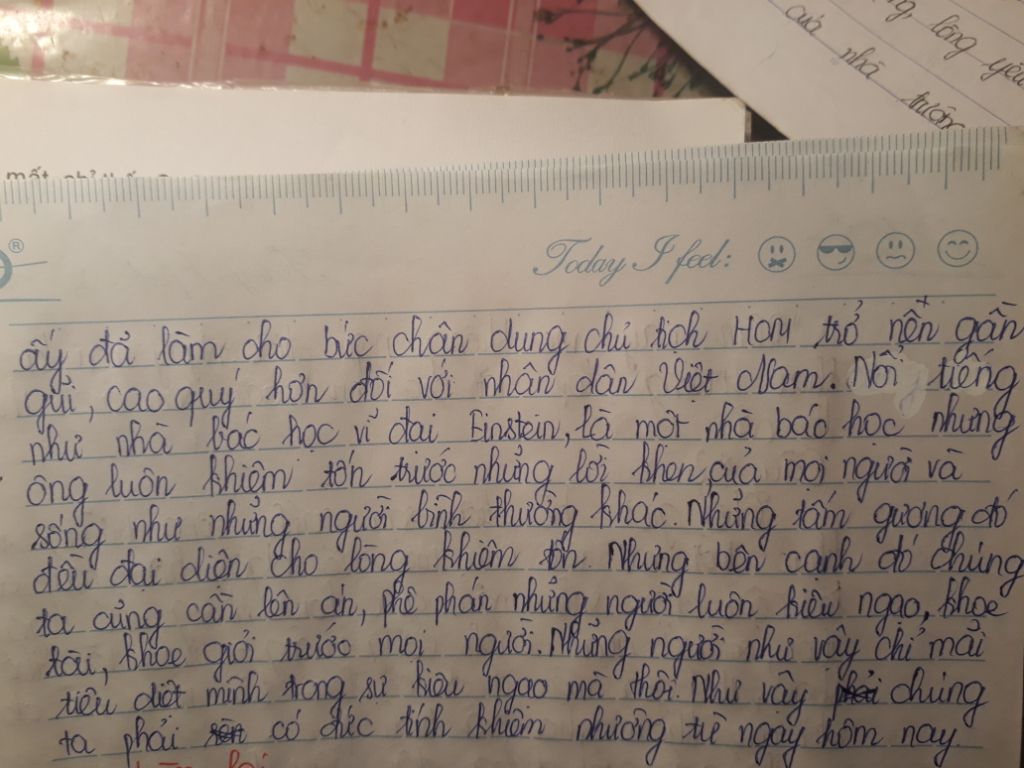 của nhà trường
lòng yêu
mất
®
Today I feel:
ấy đả làm cho bức chân dung chủ tịch HCM trở nên gần
gủi, cao quý hơn đối với nhân dân Việt Nam. Nổi tiếng
như nhà bác học vỉ đại Einstein, là một nhà bác học nhưng
ông luôn khiêm tốn trước nhửng lời khen của mọi người và
sống như nhửng người bình thường khác. Nhửng tấm gương đó
đều đại diện cho lòng khiêm tốn. Nhưng bên cạnh đó chúng
ta củng cần lên án, phê phán nhửng người luôn kiêu ngạo, khoe
tài, khoe giỏi trước mọi người. Nhửng người như vậy chỉ mải
tiêu diệt mình trong sự kiêu ngạo mà thôi. Như vậy phải chúng
ta phải có đức tính khiêm nhường từ ngày hôm nay.